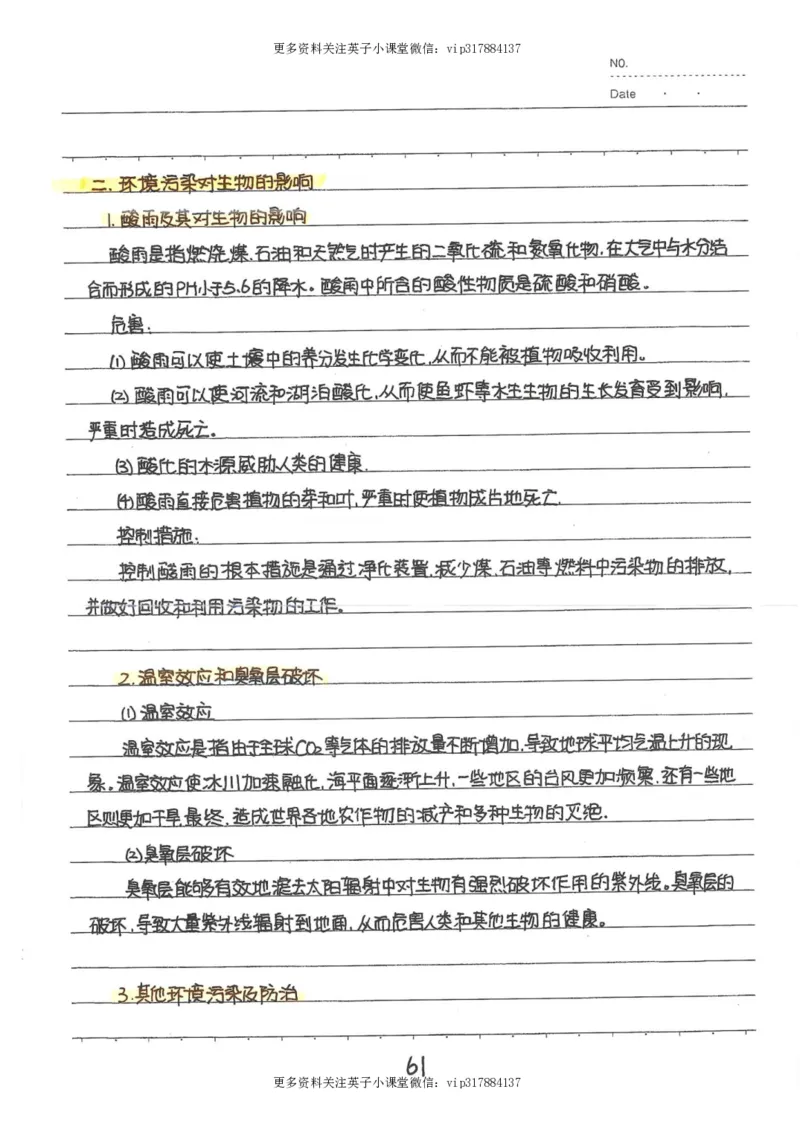 更多资料关注英子小课堂微信：vip317884137
NO.
Date
二. 环境污染对生物的影响
1. 酸雨及其对生物的影响
酸雨是指燃烧煤.石油和天然气时产生的二氧化硫和氮氧化物.在大气中与水分结
合而形成的PH小于5.6的降水。酸雨中所含的酸性物质是硫酸和硝酸。
危害:
(1) 酸雨可以使土壤中的养分发生化学变化,从而不能被植物吸收利用。
(2) 酸雨可以使河流和湖泊酸化,从而使鱼虾等水生生物的生长发育受到影响,
严重时造成死亡。
(3) 酸化的水源威胁人类的健康.
(4) 酸雨直接危害植物的芽和叶,严重时使植物成片地死亡.
控制措施:
控制酸雨的根本措施是通过净化装置.减少煤.石油等燃料中污染物的排放,
并做好回收和利用污染物的工作。
2. 温室效应和臭氧层破坏
(1) 温室效应
温室效应是指由于全球CO₂等气体的排放量不断增加,导致地球平均气温上升的现
象。温室效应使冰川加速融化,海平面逐渐上升,一些地区的台风更加频繁.还有一些地
区则更加干旱.最终.造成世界各地农作物的减产和多种生物的灭绝.
(2) 臭氧层破坏
臭氧层能够有效地滤去太阳辐射中对生物有强烈破坏作用的紫外线。臭氧层的
破坏,导致大量紫外线辐射到地面,从而危害人类和其他生物的健康。
3. 其他环境污染及防治
61
更多资料关注英子小课堂微信：vip317884137